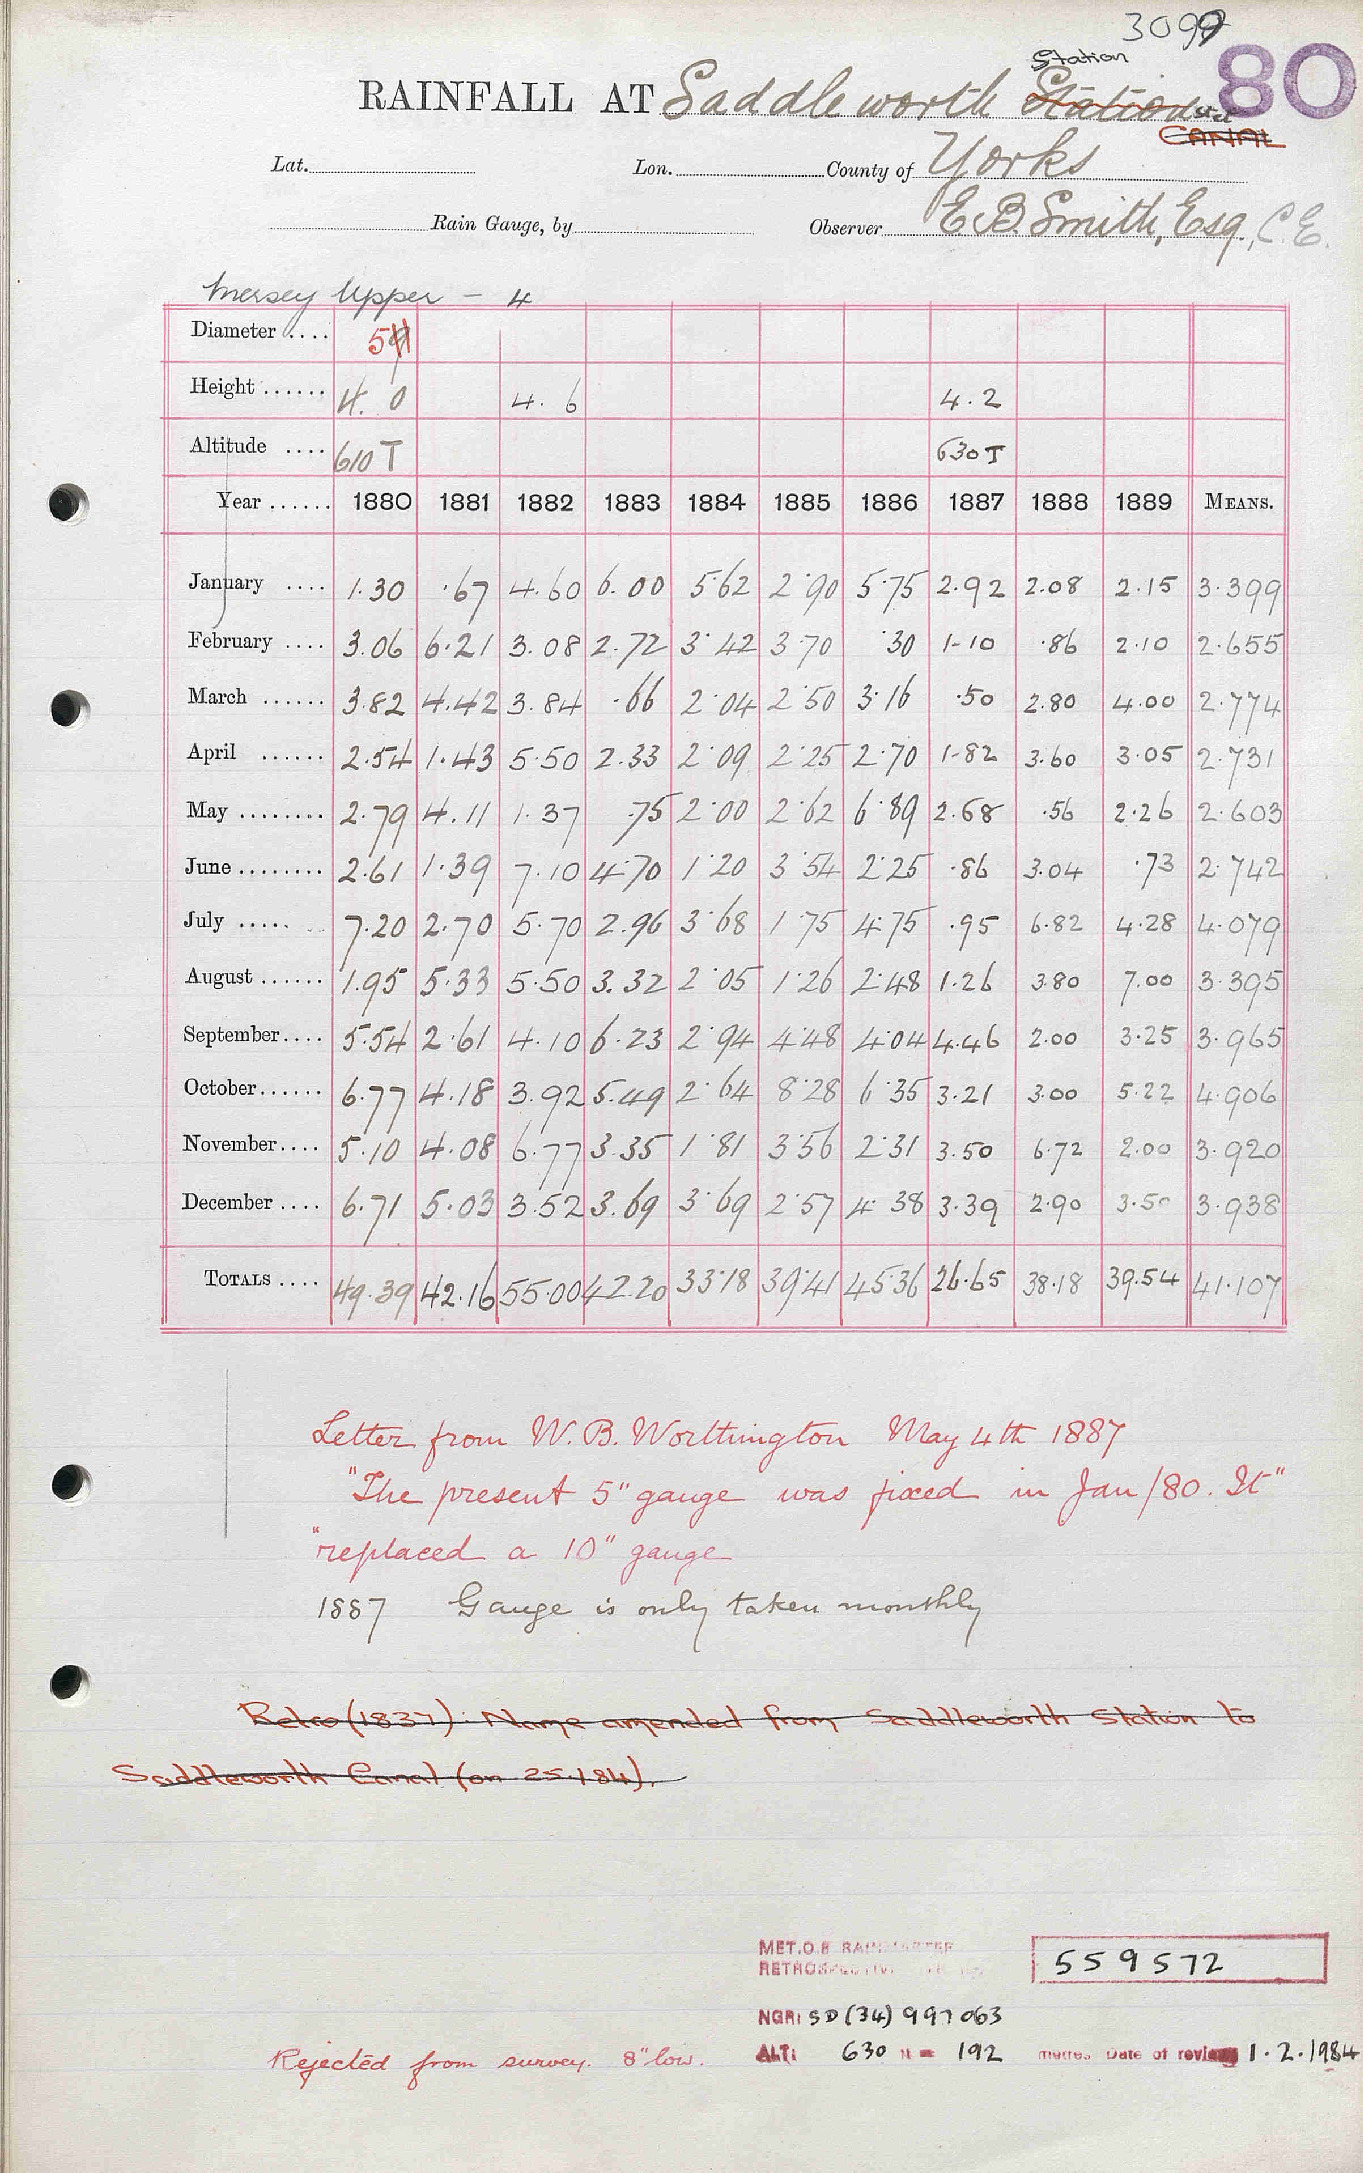 3099
80
Station
RAINFALL AT Saddleworth Station
stet
CANAL
Lat. Lon. County of Yorks
Rain Gauge, by Observer E B Smith, Esq., C.E.
Mersey Upper - 4
Diameter .... 5"
Height ...... 4. 0 4. 6 4. 2
Altitude .... 610 T 630 T
Year ...... 1880 1881 1882 1883 1884 1885 1886 1887 1888 1889 MEANS.
January .... 1.30 .67 4.60 6.00 5.62 2.90 5.75 2.92 2.08 2.15 3.399
February .... 3.06 6.21 3.08 2.72 3.42 3.70 .30 1-10 .86 2.10 2.655
March ...... 3.82 4.42 3.84 .66 2.04 2.50 3.16 .50 2.80 4.00 2.774
April ...... 2.54 1.43 5.50 2.33 2.09 2.25 2.70 1-82 3.60 3.05 2.731
May ........ 2.79 4.11 1.37 .75 2.00 2.62 6.89 2.68 .56 2.26 2.603
June ........ 2.61 1.39 7.10 4.70 1.20 3.54 2.25 .86 3.04 .73 2.742
July ..... 7.20 2.70 5.70 2.96 3.68 1.75 4.75 .95 6.82 4.28 4.079
August ...... 1.95 5.33 5.50 3.32 2.05 1.26 2.48 1.26 3.80 7.00 3.395
September.... 5.54 2.61 4.10 6.23 2.94 4.48 4.04 4.46 2.00 3.25 3.965
October...... 6.77 4.18 3.92 5.49 2.64 8.28 6.35 3.21 3.00 5.22 4.906
November.... 5.10 4.08 6.77 3.35 1.81 3.56 2.31 3.50 6.72 2.00 3.920
December .... 6.71 5.03 3.52 3.69 3.69 2.57 4.38 3.39 2.90 3.50 3.938
TOTALS .... 49.39 42.16 55.00 42.20 33.18 39.41 45.36 26.65 38.18 39.54 41.107
Letter from W. B. Worthington May 4th 1887
"The present 5" gauge was fixed in Jan/80. It"
"replaced a 10" gauge
1887 Gauge is only taken monthly
Retro (1837): Name amended from Saddleworth Station to
Saddleworth Canal (on 25.1.84).
MET.O.8
559572
NGR: SD (34) 997 063
Rejected from survey. 8" low.
ALT: 630 ft = 192 metres. Date of review 1.2.1984